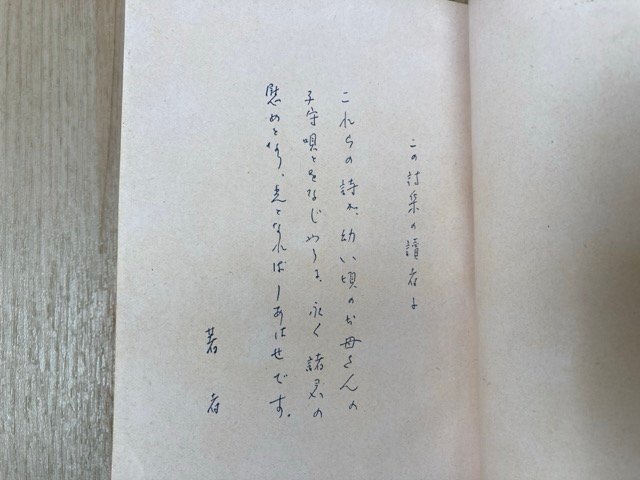 この詩集の讀者に
これらの詩が、幼い頃のお母さんの
子守唄とをなじやうに、永く諸君の
慰めとなり、光となればしあはせです。
著者